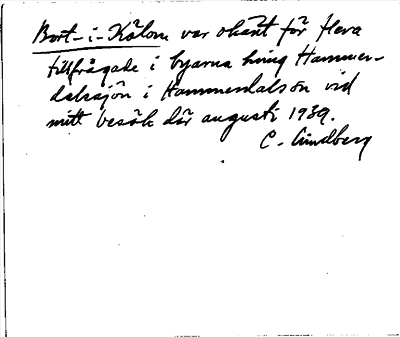 Bort-i-Kålom var okänt för flera
tillfrågade i byarna kring Hammer-
dalssjön i Hammerdals sn vid
mitt besök där augusti 1939.
C. Lindberg